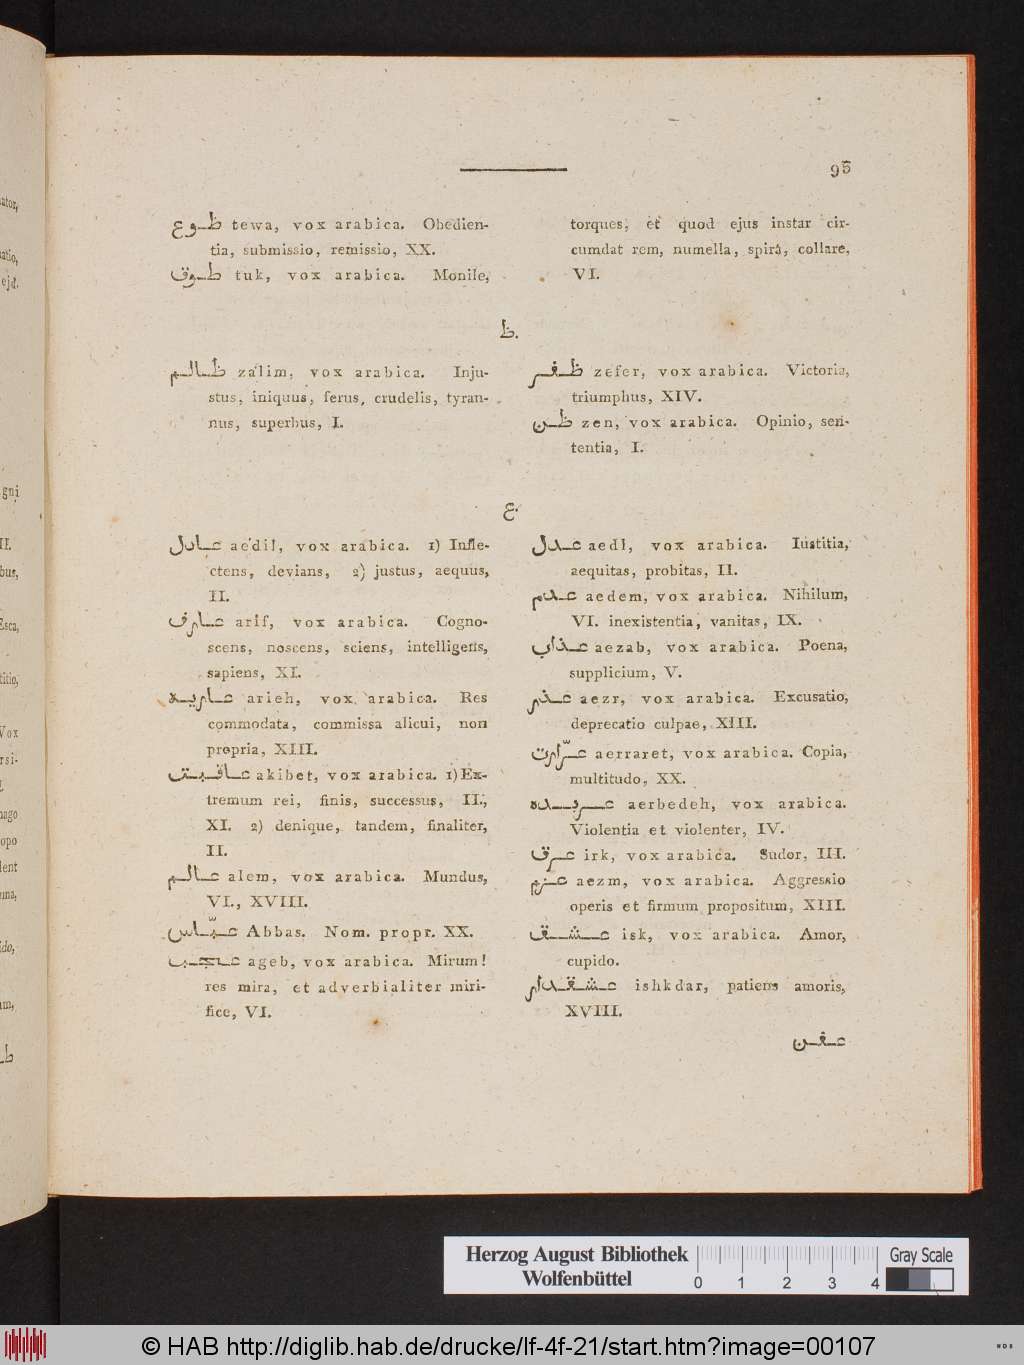 95
ظوع tewa, vox arabica. Obedien-
tia, submissio, remissio, XX.
طوق tuk, vox arabica. Monile,
torques, et quod ejus instar cir-
cumdat rem, numella, spira, collare,
VI.
ظ.
ظالم zalim, vox arabica. Inju-
stus, iniquus, ferus, crudelis, tyran-
nus, superbus, I.
ظفر zefer, vox arabica. Victoria,
triumphus, XIV.
ظن zen, vox arabica. Opinio, sen-
tentia, I.
ع.
عادل aedil, vox arabica. 1) Infle-
ctens, devians, 2) justus, aequus,
II.
عارف arif, vox arabica. Cogno-
scens, noscens, sciens, intelligens,
sapiens, XI.
عاريه arieh, vox arabica. Res
commodata, commissa alicui, non
propria, XIII.
عاقبت akibet, vox arabica. 1) Ex-
tremum rei, finis, successus, II.,
XI. 2) denique, tandem, finaliter,
II.
عالم alem, vox arabica. Mundus,
VI., XVIII.
عبّاس Abbas. Nom. propr. XX.
عجب ageb, vox arabica. Mirum!
res mira, et adverbialiter miri-
fice, VI.
عدل aedl, vox arabica. Iustitia,
aequitas, probitas, II.
عدم aedem, vox arabica. Nihilum,
VI. inexistentia, vanitas, IX.
عذاب aezab, vox arabica. Poena,
supplicium, V.
عذر aezr, vox arabica. Excusatio,
deprecatio culpae, XIII.
عرّارت aerraret, vox arabica. Copia,
multitudo, XX.
عربده aerbedeh, vox arabica.
Violentia et violenter, IV.
عرق irk, vox arabica. Sudor, III.
عزم aezm, vox arabica. Aggressio
operis et firmum propositum, XIII.
عشق isk, vox arabica. Amor,
cupido.
عشقدار ishkdar, patiens amoris,
XVIII.
عفن
ator,
atio,
ejd.
gni
II.
bus,
Esca,
titio,
Vox
rsi-
nago
opo
dent
ido,
Herzog August Bibliothek
Wolfenbüttel
0 1 2 3 4
Gray Scale
© HAB http://diglib.hab.de/drucke/lf-4f-21/start.htm?image=00107